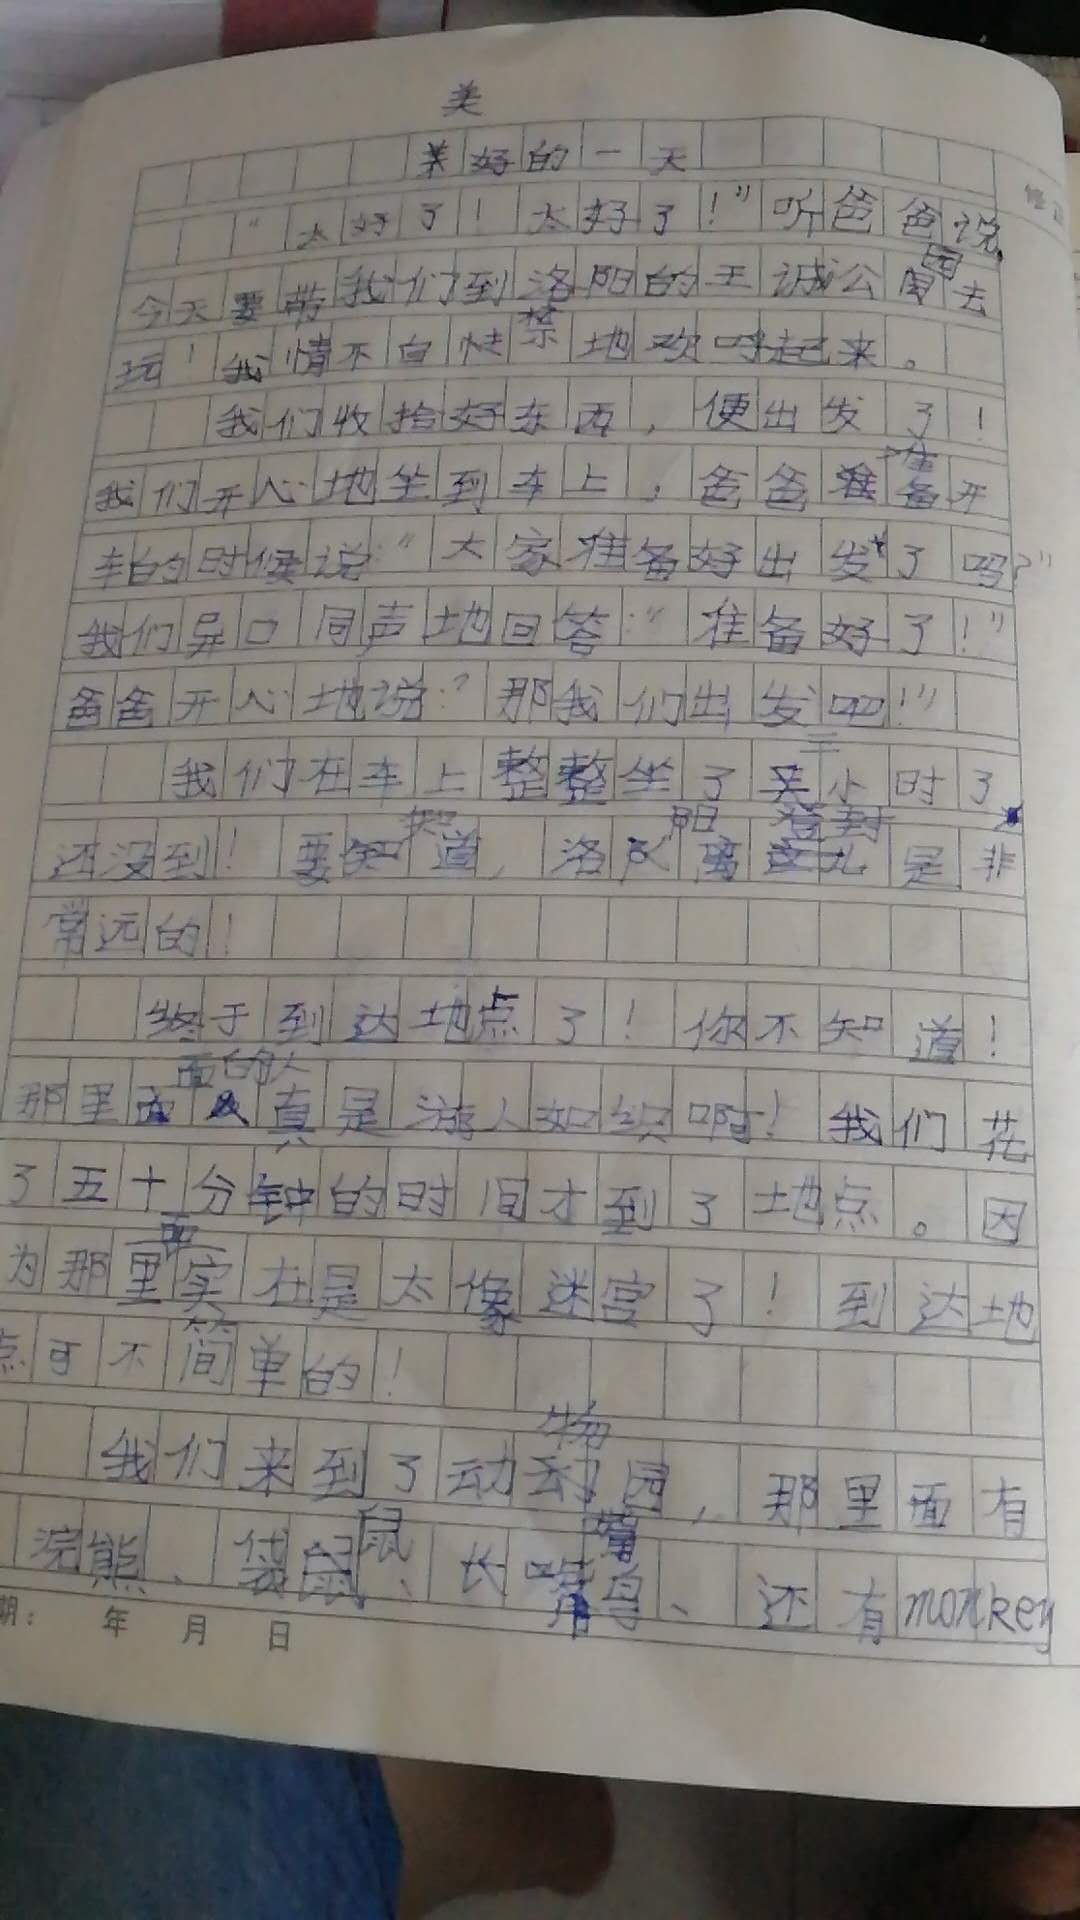 美
美好的一天
“太好了！太好了！”听爸爸说
园
今天要带我们到洛阳的王诚公园去
禁
玩！我情不自禁地欢呼起来。
我们收拾好东西，便出发了！
准
我们开心地坐到车上，爸爸准备开
车的时候说：“大家准备好出发了吗？”
我们异口同声地回答：“准备好了！”
爸爸开心地说：“那我们出发吧！”
三
我们在车上整整坐了小时了
知 阳 登封
还没到！要知道，洛离这儿是非
常远的！
终于到达地点了！你不知道！
面的人
那里面人真是游人如织啊！我们花
了五十分钟的时间才到了地点。因
面
为那里实在是太像迷宫了！到达地
简
点可不简单的！
物
我们来到了动园，那里面有
鼠 嘴
浣熊、袋鼠、长嘴鸟、还有monkey
期： 年 月 日